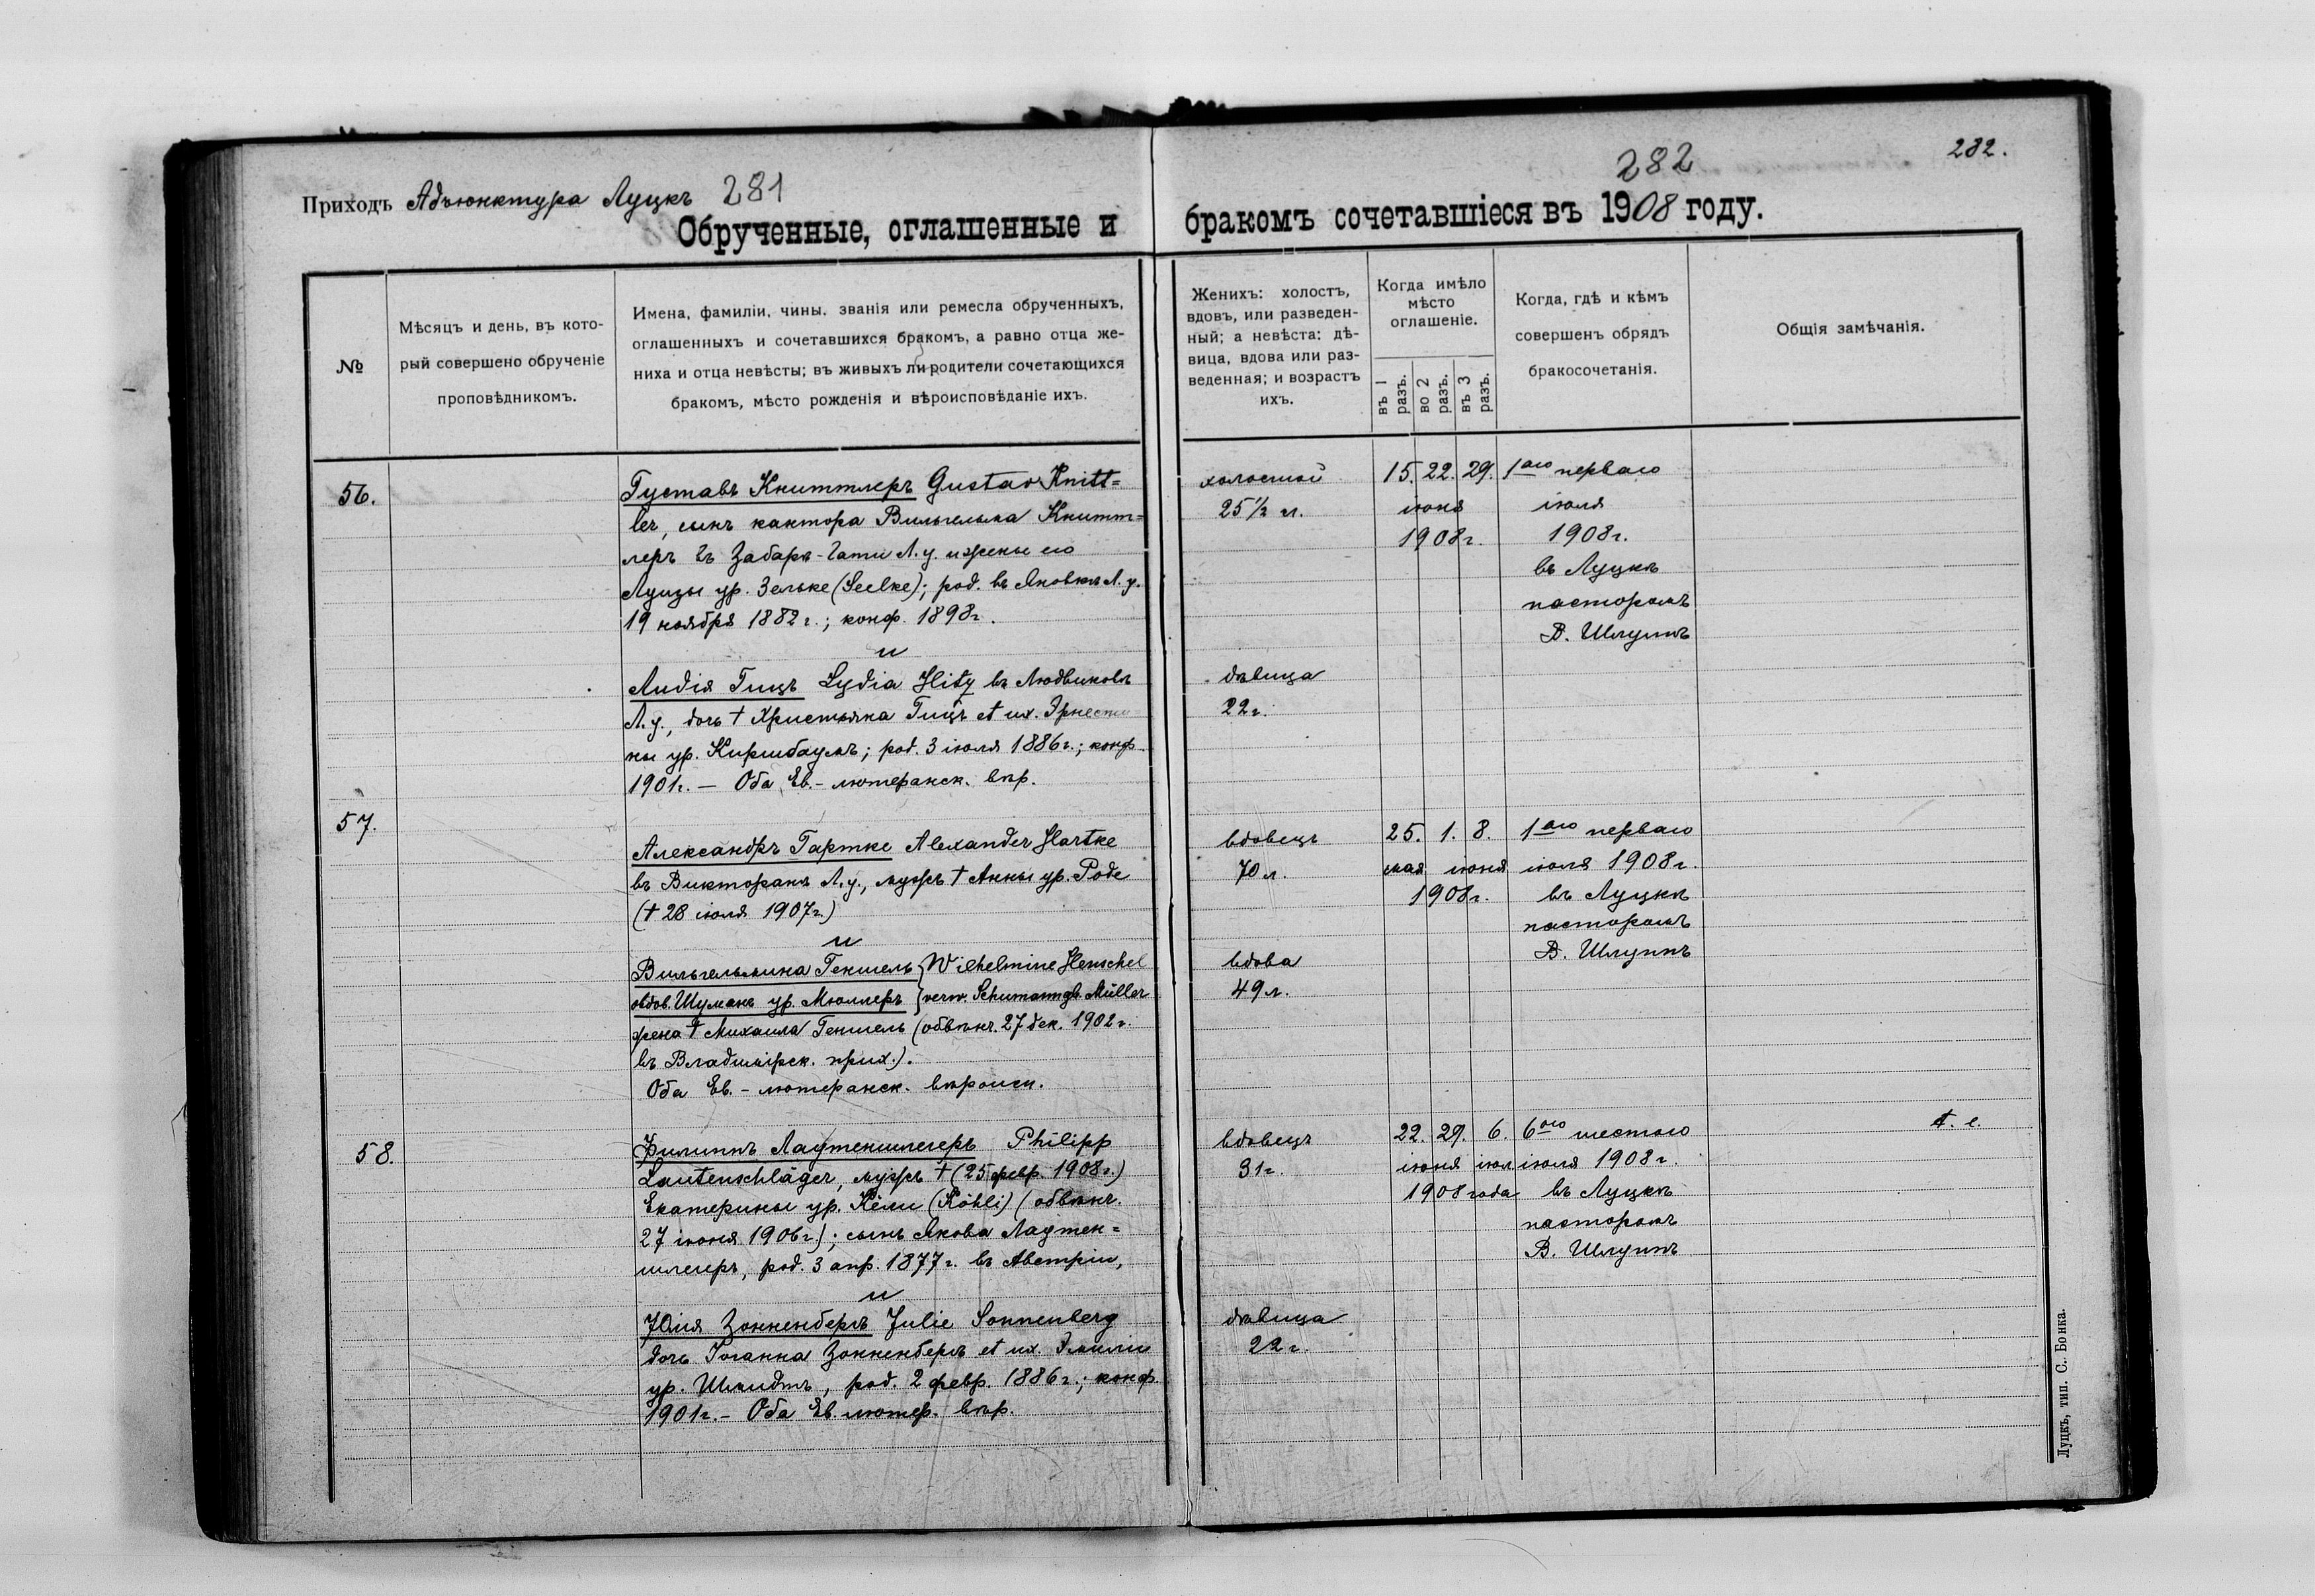 Приходъ Адъюнктура Луцкъ 281
Обрученные, оглашенные и
№
Мѣсяцъ и день, въ кото-
рый совершено обрученіе
проповѣдникомъ.
Имена, фамиліи, чины. званія или ремесла обрученныхъ,
оглашенныхъ и сочетавшихся бракомъ, а равно отца же-
ниха и отца невѣсты; въ живыхъ ли родители сочетающихся
бракомъ, мѣсто рожденія и вѣроисповѣданіе ихъ.
56.
Густавъ Книттлеръ Gustav Knitt=
ler, сынъ кантора Вильгельма Книтт=
леръ въ Забара-Гати Л.у. и жены его
Луизы ур. Зельке (Seelke); род. въ Яновкѣ Л.у.
19 ноября 1882 г.; конф. 1898г.
и
Лидія Гицъ Lydia Hitz въ Людвиковѣ
Л.у., дочь † Христьяна Гицъ et ux. Эрнести
ны ур. Киршбаумъ; род. 3 іюля 1886г.; конф.
1901г. — Оба Ев.-лютеранск. вѣр.
57.
Александръ Гартке Alexander Hartke
въ Викторянѣ Л.у., мужъ † Анны ур. Роде
(† 28 іюля 1907г.)
и
Вильгельмина Геншель } Wilhelmine Henschel
овдов. Шуманъ ур. Мюллеръ } verw. Schumann gb. Müller
жена † Михаила Геншель (обвѣнч. 27 дек. 1902г.
въ Владимірск. прих.).
Оба Ев.-лютеранск. вѣроисп.
58.
Филиппъ Лаутеншлегеръ Philipp
Lautenschläger, мужъ † (25 февр. 1908г.)
Екатерины ур. Кели (Köhli) (обвѣнч.
27 іюня 1906г.); сынъ Якова Лаутен=
шлегеръ, род. 3 апр. 1877г. въ Австріи,
и
Юлія Зонненбергъ Julie Sonnenberg
дочь Іоганна Зонненбергъ et ux. Эмиліи
ур. Шмидтъ, род. 2 февр. 1886г.; конф.
1901г. — Оба Ев. лютер. вѣр.
282
282.
бракомъ сочетавшіеся въ 1908 году.
Женихъ: холостъ,
вдовъ, или разведен-
ный; а невѣста: дѣ-
вица, вдова или раз-
веденная; и возрастъ
ихъ.
Когда имѣло
мѣсто
оглашеніе.
въ 1 разъ.
во 2 разъ.
въ 3 разъ.
Когда, гдѣ и кѣмъ
совершенъ обрядъ
бракосочетанія.
Общія замѣчанія.
холостой 15. 22. 29. 1аго перваго
25½ л. іюня іюля
1908г. 1908г.
въ Луцкѣ
пасторомъ
В. Шлуппъ
дѣвица
22г.
вдовецъ 25. 1. 8. 1аго перваго
70 л. мая іюня іюля 1908г.
1908г. въ Луцкѣ
пасторомъ
В. Шлуппъ
вдова
49 л.
вдовецъ 22. 29. 6. 6ого шестого
31г. іюня іюл. іюля 1908г.
1908 года въ Луцкѣ
пасторомъ
В. Шлуппъ
дѣвица
22г.
Луцкъ, тип. С. Бонка.